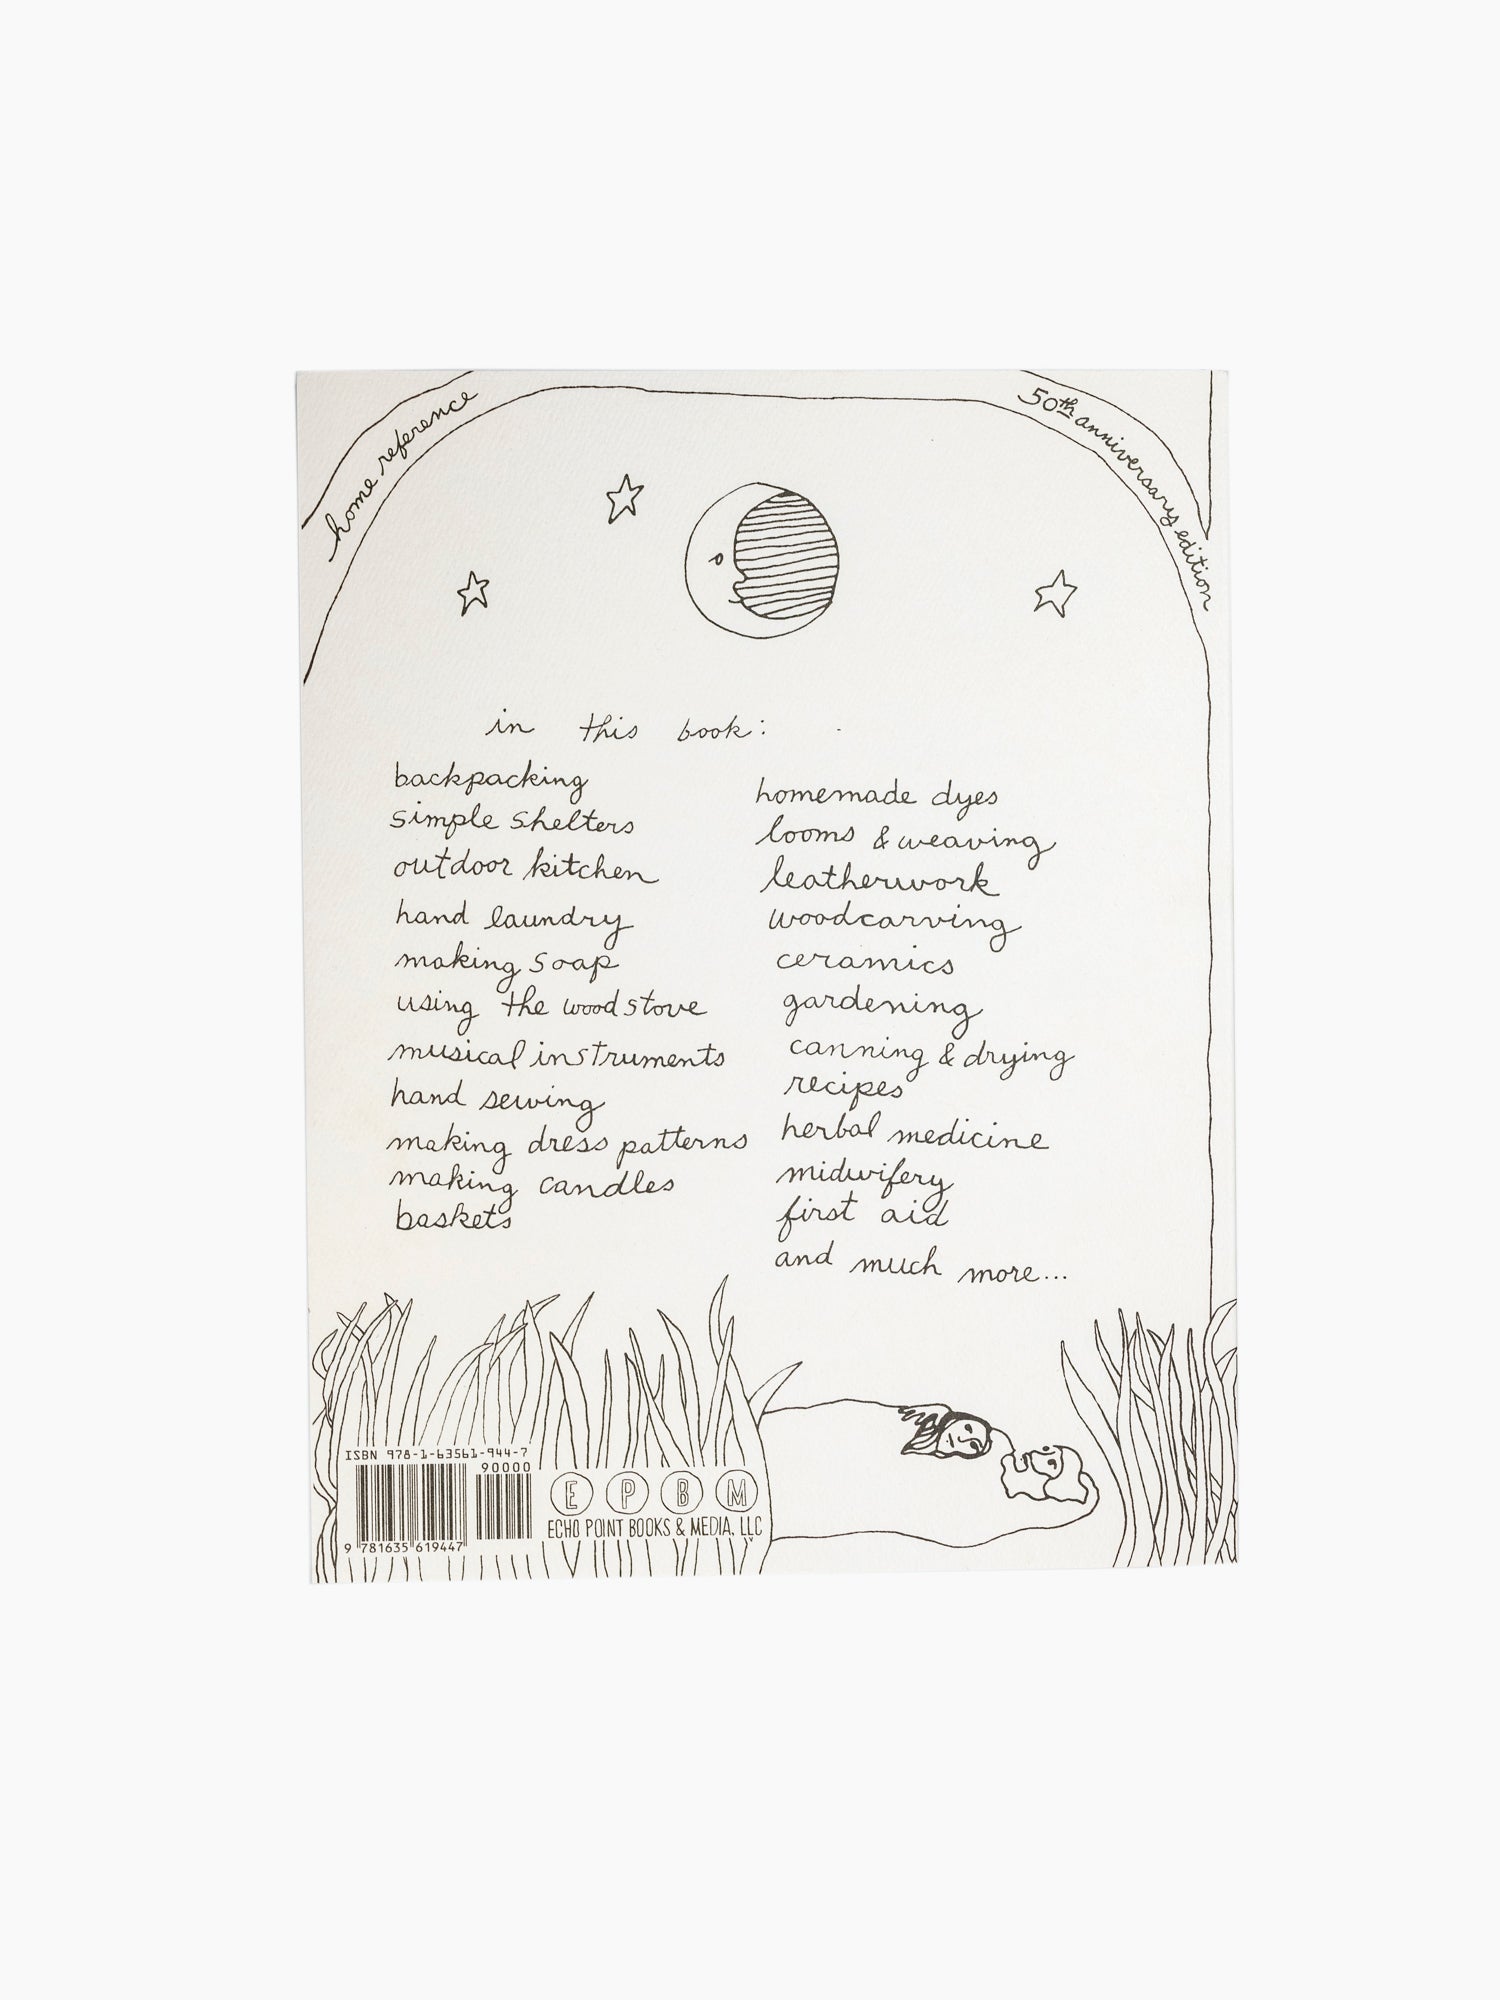 home reference
50th anniversary edition
in this book:
backpacking
simple shelters
outdoor kitchen
hand laundry
making soap
using the wood stove
musical instruments
hand sewing
making dress patterns
making candles
baskets
homemade dyes
looms & weaving
leatherwork
woodcarving
ceramics
gardening
canning & drying
recipes
herbal medicine
midwifery
first aid
and much more...
ISBN 978-1-63561-944-7
90000
9 781635 619447
E P B M
ECHO POINT BOOKS & MEDIA, LLC